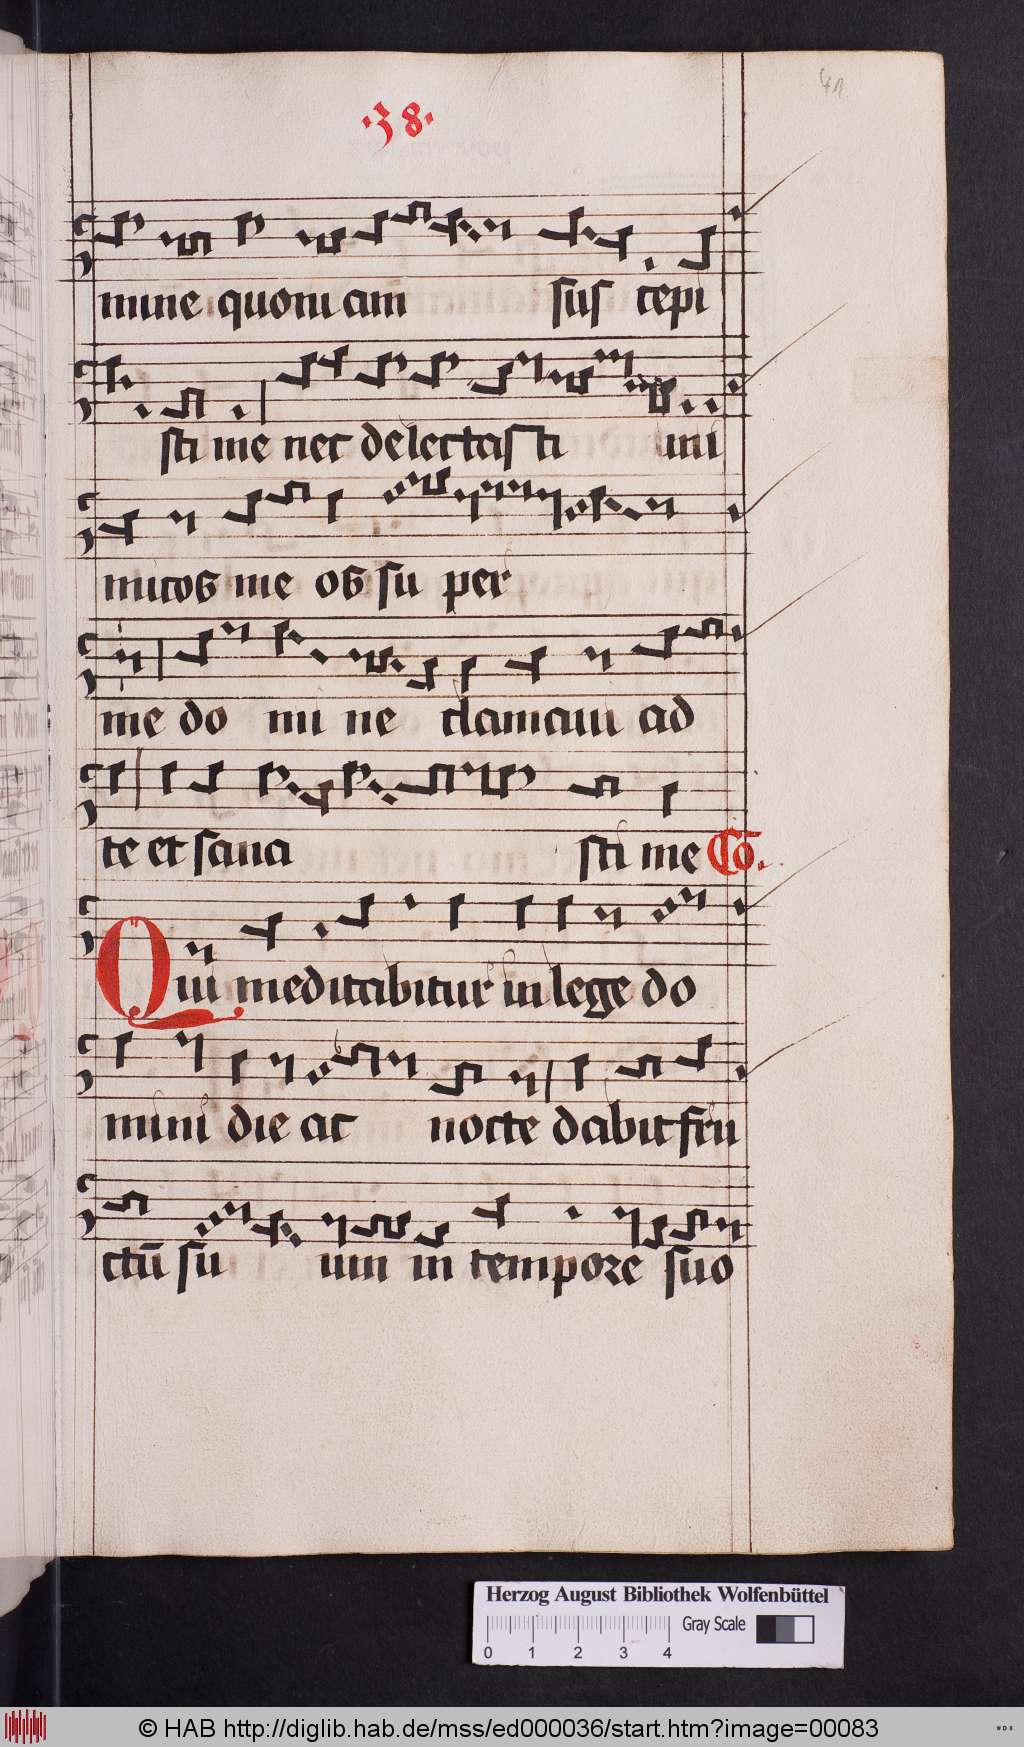 ·38·
41
mine quoni am sus cepi
sti me nec delectas ti ini
micos me os su per
me do mi ne clamaui ad
te et sana sti me Cō.
Qui meditabitur in lege do
mini die ac nocte dabit fru
ctū su um in tempore suo
Herzog August Bibliothek Wolfenbüttel
Gray Scale
0 1 2 3 4
© HAB http://diglib.hab.de/mss/ed000036/start.htm?image=00083